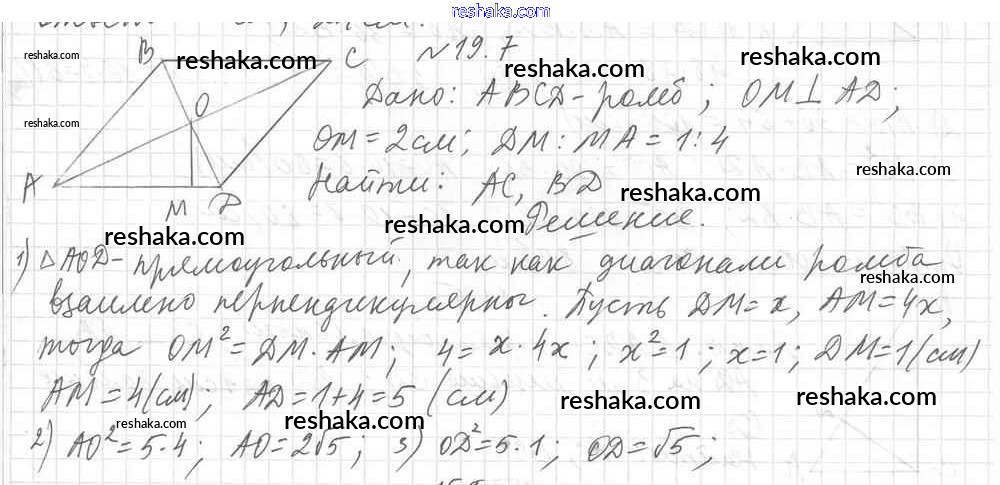 reshaka.com
№19.7
B C O A M D
Дано: ABCD - ромб; OM⊥AD;
OM = 2 см; DM : MA = 1 : 4
Найти: AC, BD
Решение.
1) △AOD - прямоугольный, так как диагонали ромба
взаимно перпендикулярны. Пусть DM = x, AM = 4x,
тогда OM² = DM · AM; 4 = x · 4x; x² = 1; x = 1; DM = 1 (см)
AM = 4 (см); AD = 1 + 4 = 5 (см)
2) AO² = 5 · 4; AO = 2√5; 3) OD² = 5 · 1; OD = √5;
reshaka.com
reshaka.com
reshaka.com
reshaka.com
reshaka.com
reshaka.com
reshaka.com
reshaka.com
reshaka.com
reshaka.com
reshaka.com
reshaka.com
reshaka.com